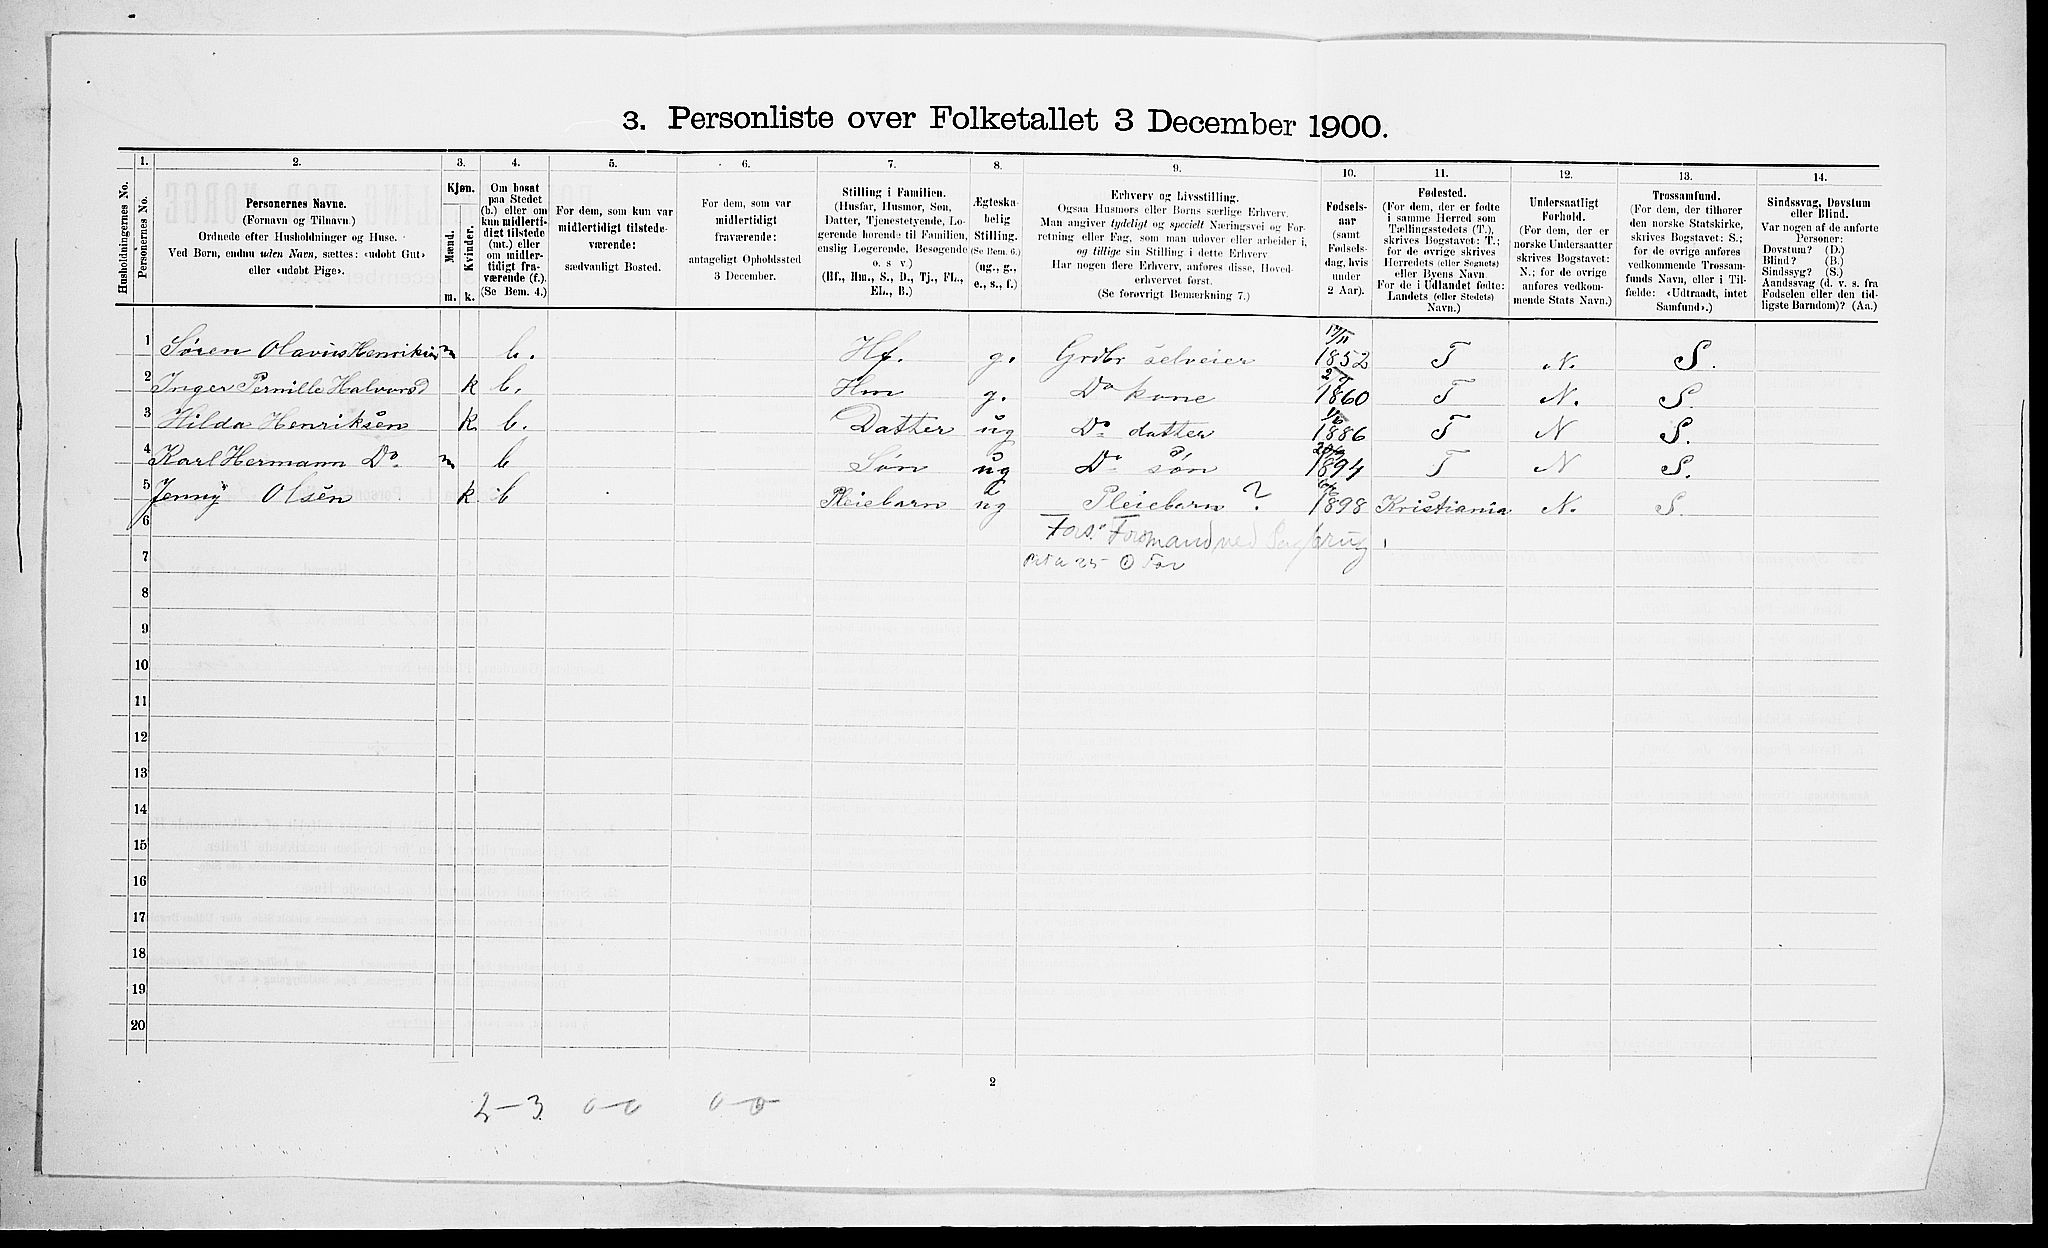 3. Personliste over Folketallet 3 December 1900.
1. 2. 3. 4. 5. 6. 7. 8. 9. 10. 11. 12. 13. 14.
Husholdningernes No.
Personernes No.
Personernes Navne.
(Fornavn og Tilnavn.)
Ordnede efter Husholdninger og Huse.
Ved Børn, endnu uden Navn, sættes: «udøbt Gut»
eller «udøbt Pige».
Kjøn.
Mænd.
Kvinder.
m. k.
Om bosat
paa Stedet
(b.) eller om
kun midlerti-
digt tilstede
(mt.) eller
om midler-
tidigt fra-
værende (f.).
(Se Bem. 4.)
For dem, som kun var
midlertidigt tilstede-
værende:
sædvanligt Bosted.
For dem, som var
midlertidigt
fraværende:
antageligt Opholdssted
3 December.
Stilling i Familien.
(Husfar, Husmor, Søn,
Datter, Tjenestetyende, Lo-
gerende hørende til Familien,
enslig Logerende, Besøgende
o. s. v.)
(Hf., Hm., S., D., Tj., FL.,
EL., B.)
Ægteska-
belig
Stilling.
(Se Bem. 6.)
(ug., g.,
e., s., f.)
Erhverv og Livsstilling.
Ogsaa Husmors eller Børns særlige Erhverv.
Man angiver tydeligt og specielt Næringsvei og For-
retning eller Fag, som man udøver eller arbeider i,
og tillige sin Stilling i dette Erhverv
Har nogen flere Erhverv, anføres disse, Hoved-
erhvervet først.
(Se forøvrigt Bemærkning 7.)
Fødsels-
aar
(samt
Fødsels-
dag, hvis
under
2 Aar).
Fødested.
(For dem, der er fødte
i samme Herred som
Tællingsstedets (T.),
skrives Bogstavet: T.;
for de øvrige skrives
Herredets (eller Sognets)
eller Byens Navn
For de i Udlandet fødte:
Landets (eller Stedets)
Navn.)
Undersaatligt
Forhold.
(For dem, der er
norske Undersaatter
skrives Bogstavet:
N.; for de øvrige
anføres vedkom-
mende Stats Navn.)
Trossamfund.
(For dem, der tilhører
den norske Statskirke,
skrives Bogstavet: S.;
for de øvrige anføres
vedkommende Trossam-
funds Navn, eller i Til-
fælde: «Udtraadt, intet
Samfund».)
Sindssvag, Døvstum
eller Blind.
Var nogen af de anførte
Personer:
Døvstum? (D.)
Blind? (B.)
Sindssyg? (S.)
Aandssvag (d. v. s. fra
Fødselen eller den tid-
ligste Barndom)? (Aa.)
1 Søren Olavus Henriksen m b. Hf. g. Grdbr selveier 1852 T N. S.
2 Inger Pernille Halvorsd k b. Hm g. Do kone 1860 T N. S.
3 Hilda Henriksen k b. Datter ug Do datter 1/6 1886 T N S.
4 Karl Hermann Do. m b Søn ug Do søn 1894 T N S.
5 Jenny Olsen k b Pleiebarn ug Pleiebarn ? 1898 Kristiania N. S.
6 Fars: Formand ved Sagbrug
7
8
9
10
11
12
13
14
15
16
17
18
19
20
2
2-3 0-0 0-0